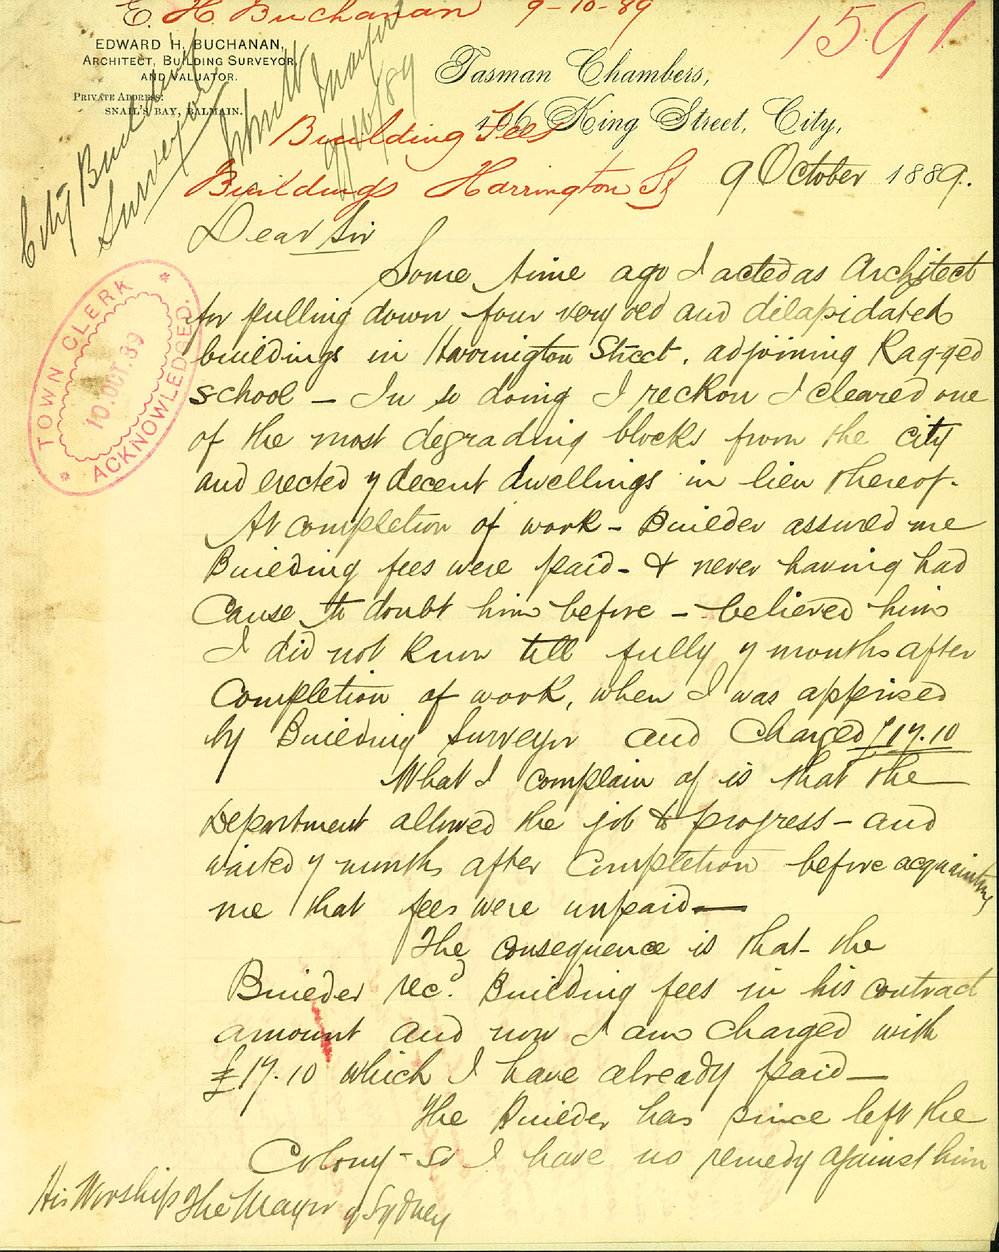 E. H. Buchanan 9-10-89
1591
EDWARD H. BUCHANAN,
ARCHITECT, BUILDING SURVEYOR,
AND VALUATOR.
PRIVATE ADDRESS:
SNAIL'S BAY, BALMAIN.
Tasman Chambers,
106 King Street, City,
City Building
Surveyor
9/10/89
Building Fees
Buildings Harrington St
9 October 1889.
Dear Sir
Some time ago I acted as Architect
for pulling down four very old and dilapidated
buildings in Harrington Street, adjoining Ragged
School - In so doing I reckon I cleared one
of the most degrading blocks from the city
and erected 7 decent dwellings in lieu thereof.
At completion of work - Builder assured me
Building fees were paid - & never having had
Cause to doubt him before - believed him
I did not know till fully 7 months after
Completion of work, when I was apprised
by Building Surveyor and Charged £17.10
What I complain of is that the
Department allowed the job to progress - and
waited 7 months after Completion before acquainting
me that fees were unpaid -
The consequence is that - the
Builder recd. Building fees in his contract
amount and now I am charged with
£17.10 which I have already paid -
The Builder has since left the
Colony - so I have no remedy against him
His Worship The Mayor of Sydney
TOWN CLERK
10.OCT.89
ACKNOWLEDGED.